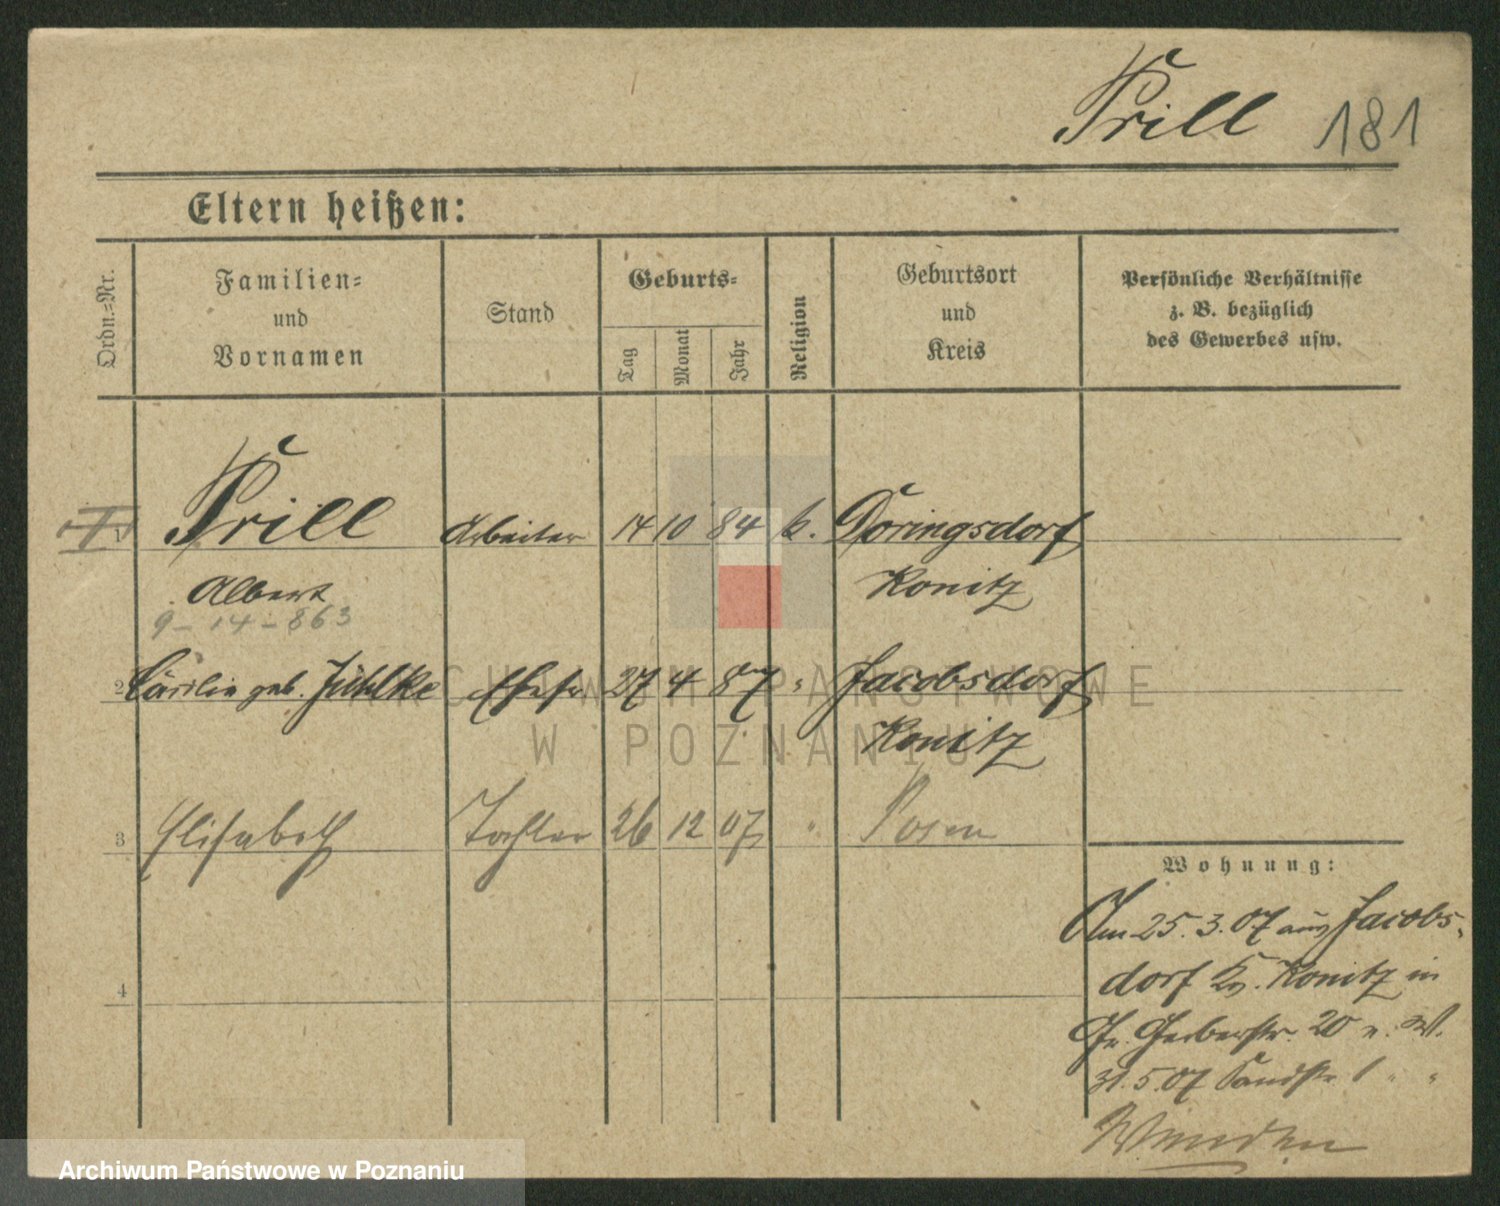 Prill 181
Eltern heißen:
Ordn.-Nr.
Familien-
und
Vornamen
Stand
Geburts-
Tag
Monat
Jahr
Religion
Geburtsort
und
Kreis
Persönliche Verhältnisse
z. B. bezüglich
des Gewerbes usw.
Prill Arbeiter 14 10 84 k. Döringsdorf
Albert Konitz
9-14-863
2 Cäcilie geb. Jühlke Ehefr 27 4 87 " Jacobsdorf
Konitz
3 Elisabeth Tochter 26 12 07 " Posen
Wohnung:
Am 25.3.07 aus Jacobs-
dorf Kr. Konitz in
Gr. Gerberstr. 20 n. W.
31.5.07 Sandstr 1 " "
4
ARCHIWUM PAŃSTWOWE
W POZNANIU
Archiwum Państwowe w Poznaniu